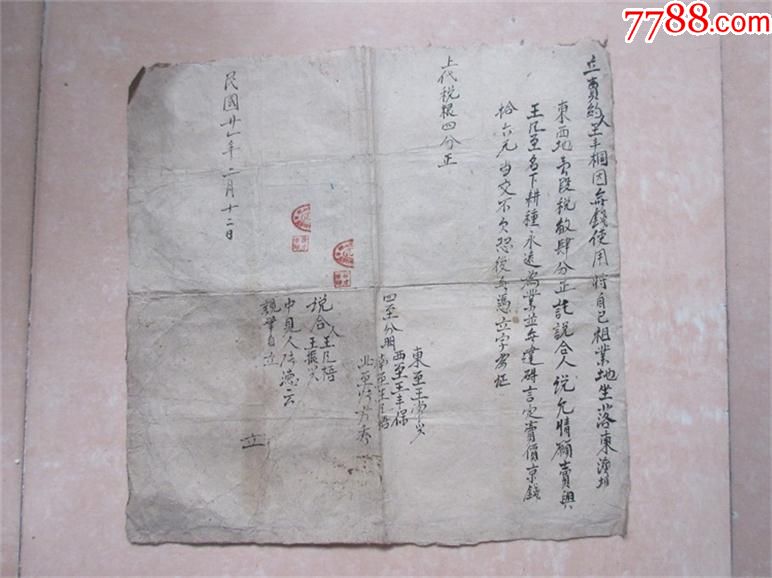 立賣約人王丰桐因無錢使用將自己祖業地坐落東
東西地壹段稅数肆分正託說合人說允情願賣與
王凡至名下耕種永远為業並無違碍言定賣價京錢
拾六元当交不欠恐後無憑立字為証
上代稅粮四分正
東至王
四至分明西至王丰保
南至王凡
北至
說合人王凡
王振
中見人 德云
親筆自立
民國廿一年二月十二日
立
7788.com